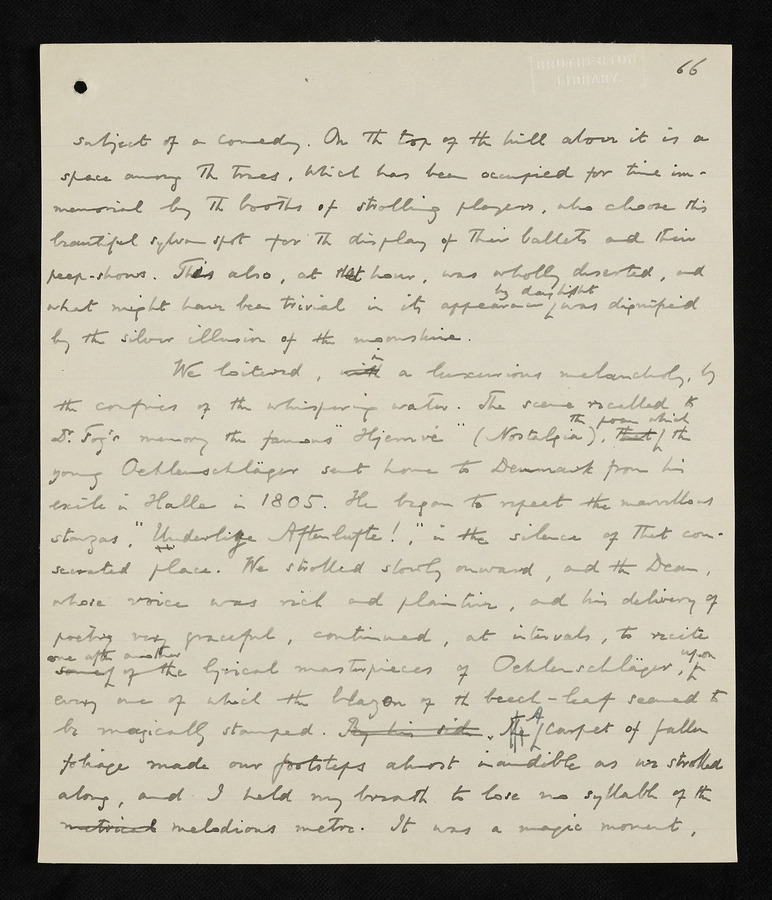 BROTHERTON
LIBRARY.
66
subject of a comedy. On the top of the hill above it is a
space among the trees, which has been occupied for time im-
memorial by the booths of strolling players, who choose this
beautiful sylvan spot for the display of their ballets and their
peep-shows. This also, at that hour, was wholly deserted, and
by daylight
what might have been trivial in its appearance was dignified
by the silver illusion of the moonshine.
in
We loitered, with a luxurious melancholy, by
the confines of the whispering water. The scene recalled to
the poem which
Dr. Fog's memory the famous "Hjemvé" (Nostalgia), that the
young Oehlenschläger sent home to Denmark from his
exile in Halle in 1805. He began to repeat the marvellous
stanzas, "Underlige Aftenlufte!," in the silence of that con-
secrated place. We strolled slowly onward, and the Dean,
whose voice was rich and plaintive, and his delivery of
poetry very graceful, continued, at intervals, to recite
one after another upon
some of the lyrical masterpieces of Oehlenschläger,
every one of which the blazon of the beech-leaf seemed to
be magically stamped. By his side. The A carpet of fallen
foliage made our footsteps almost inaudible as we strolled
along, and I held my breath to lose no syllable of the
metrical melodious metre. It was a magic moment,